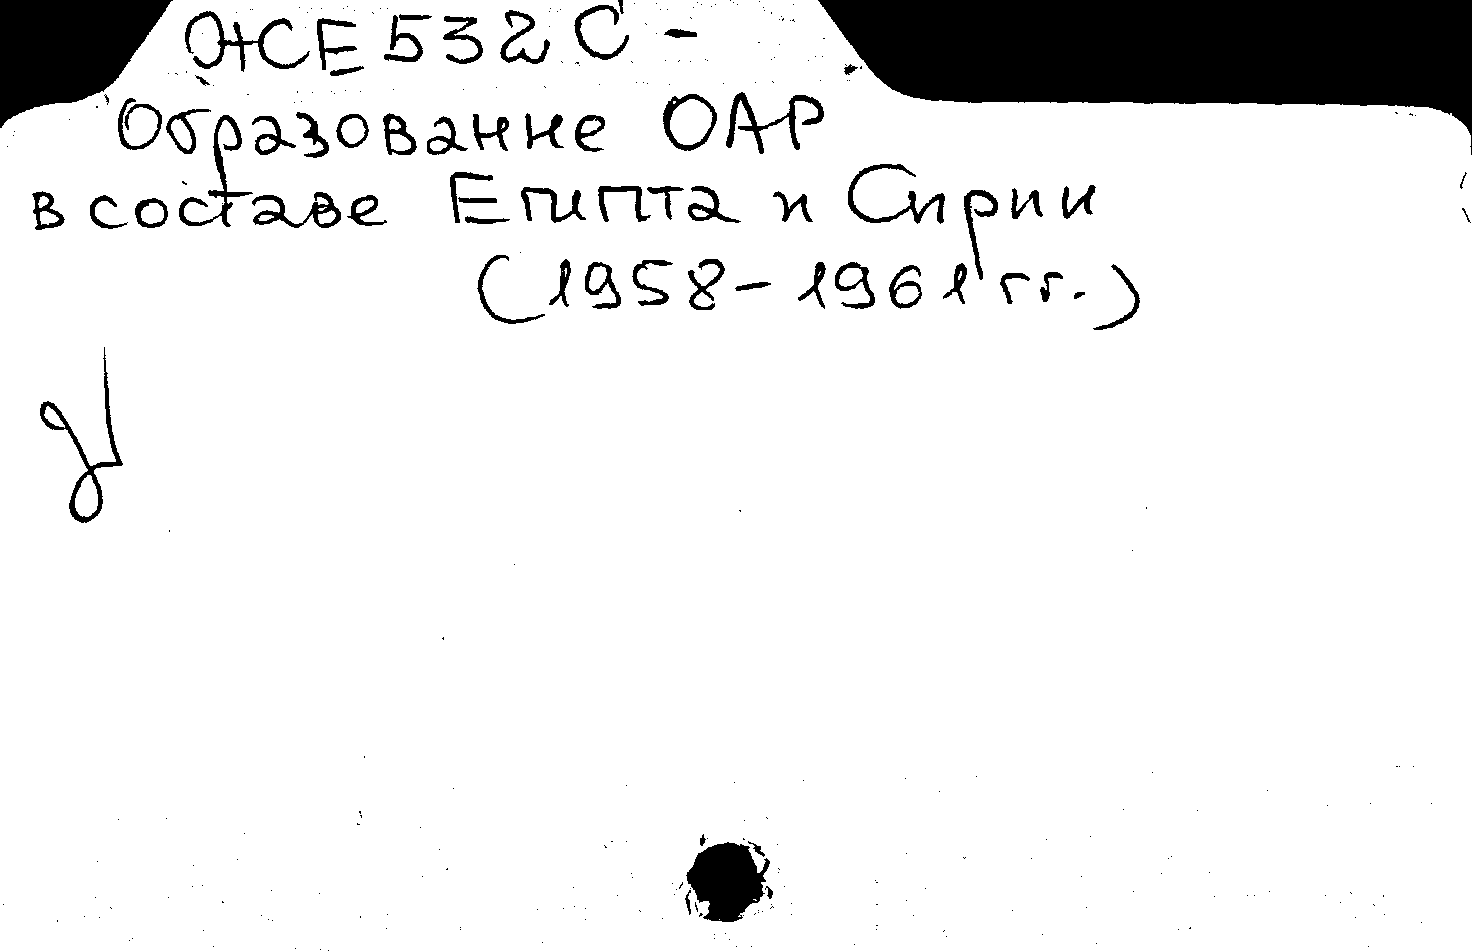 ЖЕ532С-
Образование ОАР
в составе Египта и Сирии
(1958-1961 гг.)